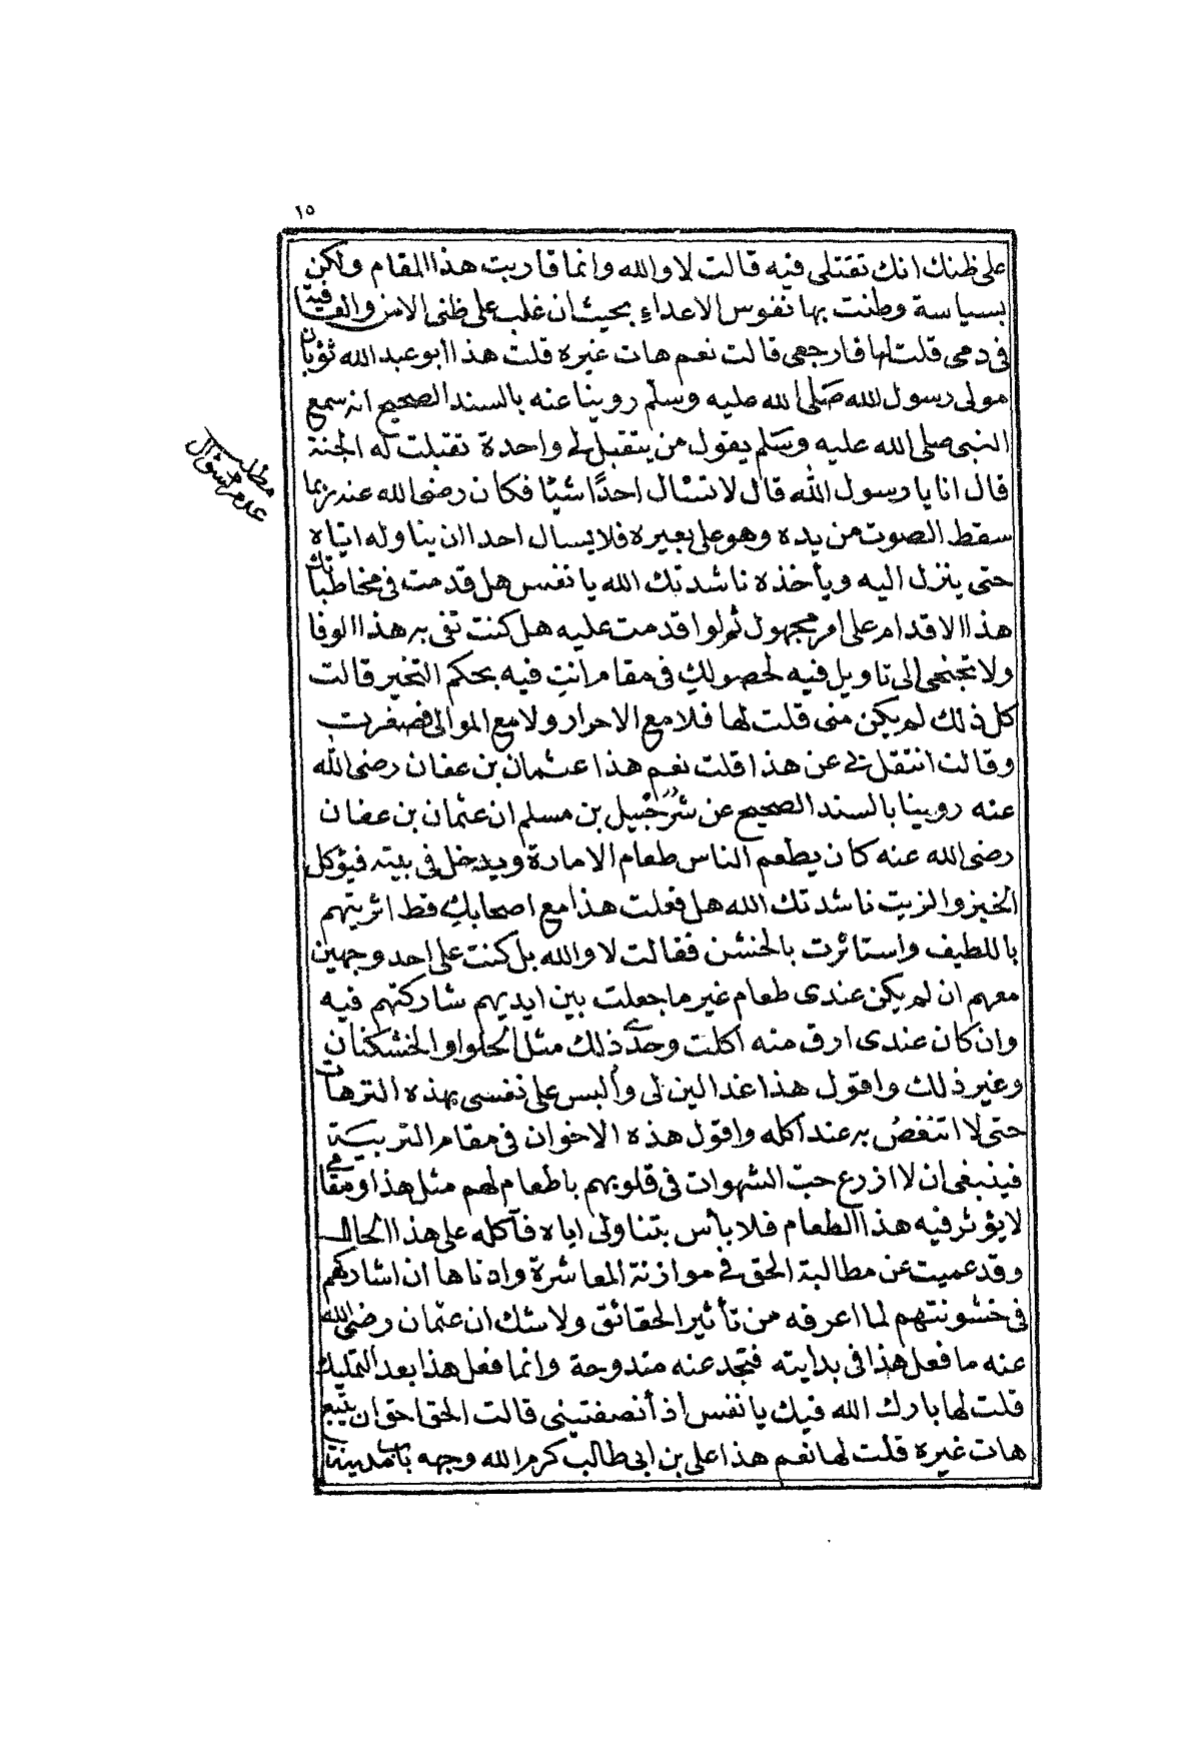 ١٥
على ظنك انك تقتلى فيه قالت لا والله وانما قاربت هذا المقام ولكن
بسياسة وطنت بها نفوس الاعداء بحيث ان غلب على ظنى الامن والعافية
فى دمى قلت لها فارجعى قالت نعم هات غيره قلت هذا ابو عبد الله ثوبان
مولى رسول الله صلى الله عليه وسلم روينا عنه بالسند الصحيح انه سمع
النبى صلى الله عليه وسلم يقول من يتقبل لى واحدة تقبلت له الجنة
مطلب
عدم سؤال
قال انا يا رسول الله قال لا تسٔال احدًا شيئا فكان رضى الله عنه ربما
سقط الصوت من يده وهو على بعيره فلا يسال احدا ان يناوله اياه
حتى ينزل اليه ويأخذه ناشدتك الله يا نفس هل قدمت فى مخاطباتك
هذا الاقدام على امر مجهول ثم لو اقدمت عليه هل كنت تفى به هذا الوفا
ولا تجنحى الى تاويل فيه لحصولكِ فى مقام انتِ فيه بحكم التخير قالت
كل ذلك لم يكن منى قلت لها فلا مع الاحرار ولا مع الموالى فصغرت
وقالت انتقل لى عن هذا قلت نعم هذا عثمان بن عفان رضى الله
عنه روينا بالسند الصحيح عن شرحبيل بن مسلم ان عثمان بن عفان
رضى الله عنه كان يطعم الناس طعام الامارة ويدخل فى بيته فيؤكل
الخبز والزيت ناشدتك الله هل فعلت هذا مع اصحابكِ قط اثرتيهم
باللطيف واستاثرت بالخشن فقالت لا والله بل كنت على احد وجهين
معهم ان لم يكن عندى طعام غير ما جعلت بين ايديهم شاركتهم فيه
وان كان عندى ارق منه اكلت وحدى ذلك مثل الحلوا والخشكنان
وغير ذلك واقول هذا غدا الين لى وألبس على نفسى بهذه الترهات
حتى لا اتنغص به عند اكله واقول هذه الاخوان فى مقام التربية
فينبغى ان لا ازرع حبّ الشهوات فى قلوبهم باطعام لهم مثل هذا ومقامى
لا يؤثر فيه هذا الطعام فلا بأس بتناولى اياه فآكله على هذا الحال
وقد عميت عن مطالبة الحق فى موازنة المعاشرة وادناها ان اشاركهم
فى خشونتهم لما اعرفه من تأثير الحقائق ولا شك ان عثمان رضى الله
عنه ما فعل هذا فى بدايته فتجد عنه مندوحة وانما فعل هذا بعد التمليك
قلت لها بارك الله فيك يا نفس اذ أنصفتينى قالت الحق احق ان يتبع
هات غيره قلت لها نعم هذا على بن ابى طالب كرم الله وجهه باب مدينة